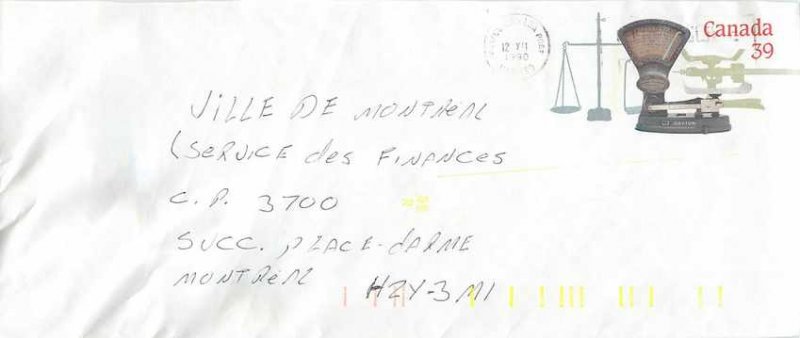 Canada
39
12 XII
1990
VILLE DE MONTRÉAL
(SERVICE des FINANCES
C.P. 3700
SUCC. PLACE-dARME
MONTRÉAL H2Y-3M1